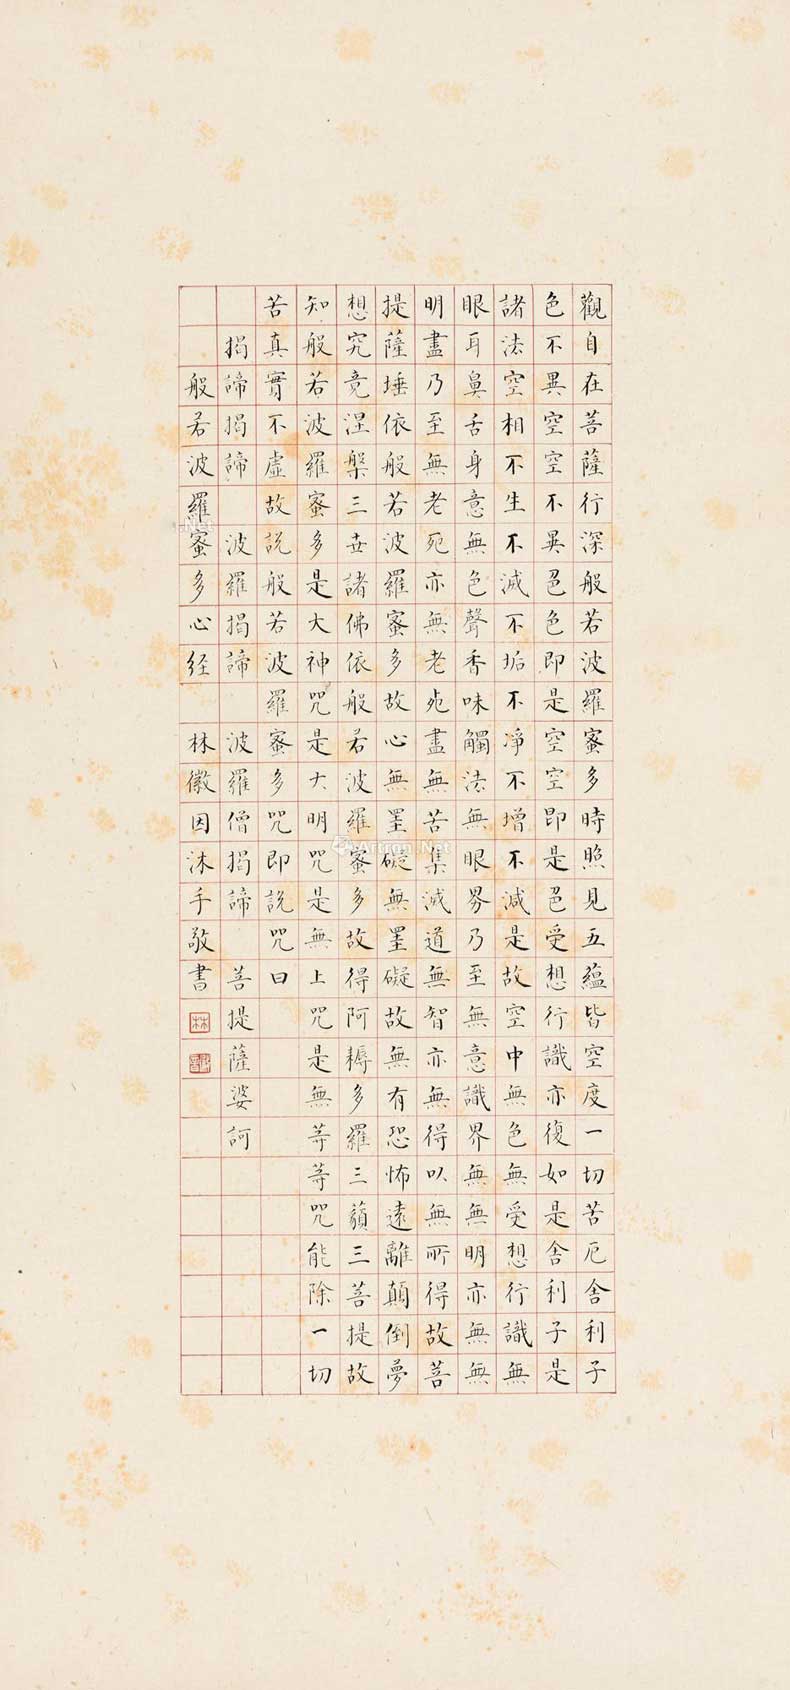 觀自在菩薩行深般若波羅蜜多時照見五蘊皆空度一切苦厄舍利子
色不異空空不異色色即是空空即是色受想行識亦復如是舍利子是
諸法空相不生不滅不垢不凈不增不減是故空中無色無受想行識無
眼耳鼻舌身意無色聲香味觸法無眼界乃至無意識界無無明亦無無
明盡乃至無老死亦無老死盡無苦集滅道無智亦無得以無所得故菩
提薩埵依般若波羅蜜多故心無罣礙無罣礙故無有恐怖遠離顛倒夢
想究竟涅槃三世諸佛依般若波羅蜜多故得阿耨多羅三藐三菩提故
知般若波羅蜜多是大神咒是大明咒是無上咒是無等等咒能除一切
苦真實不虛故說般若波羅蜜多咒即說咒曰
揭諦揭諦 波羅揭諦 波羅僧揭諦 菩提薩婆訶
般若波羅蜜多心经 林徽因沐手敬書
林
Artron.Net